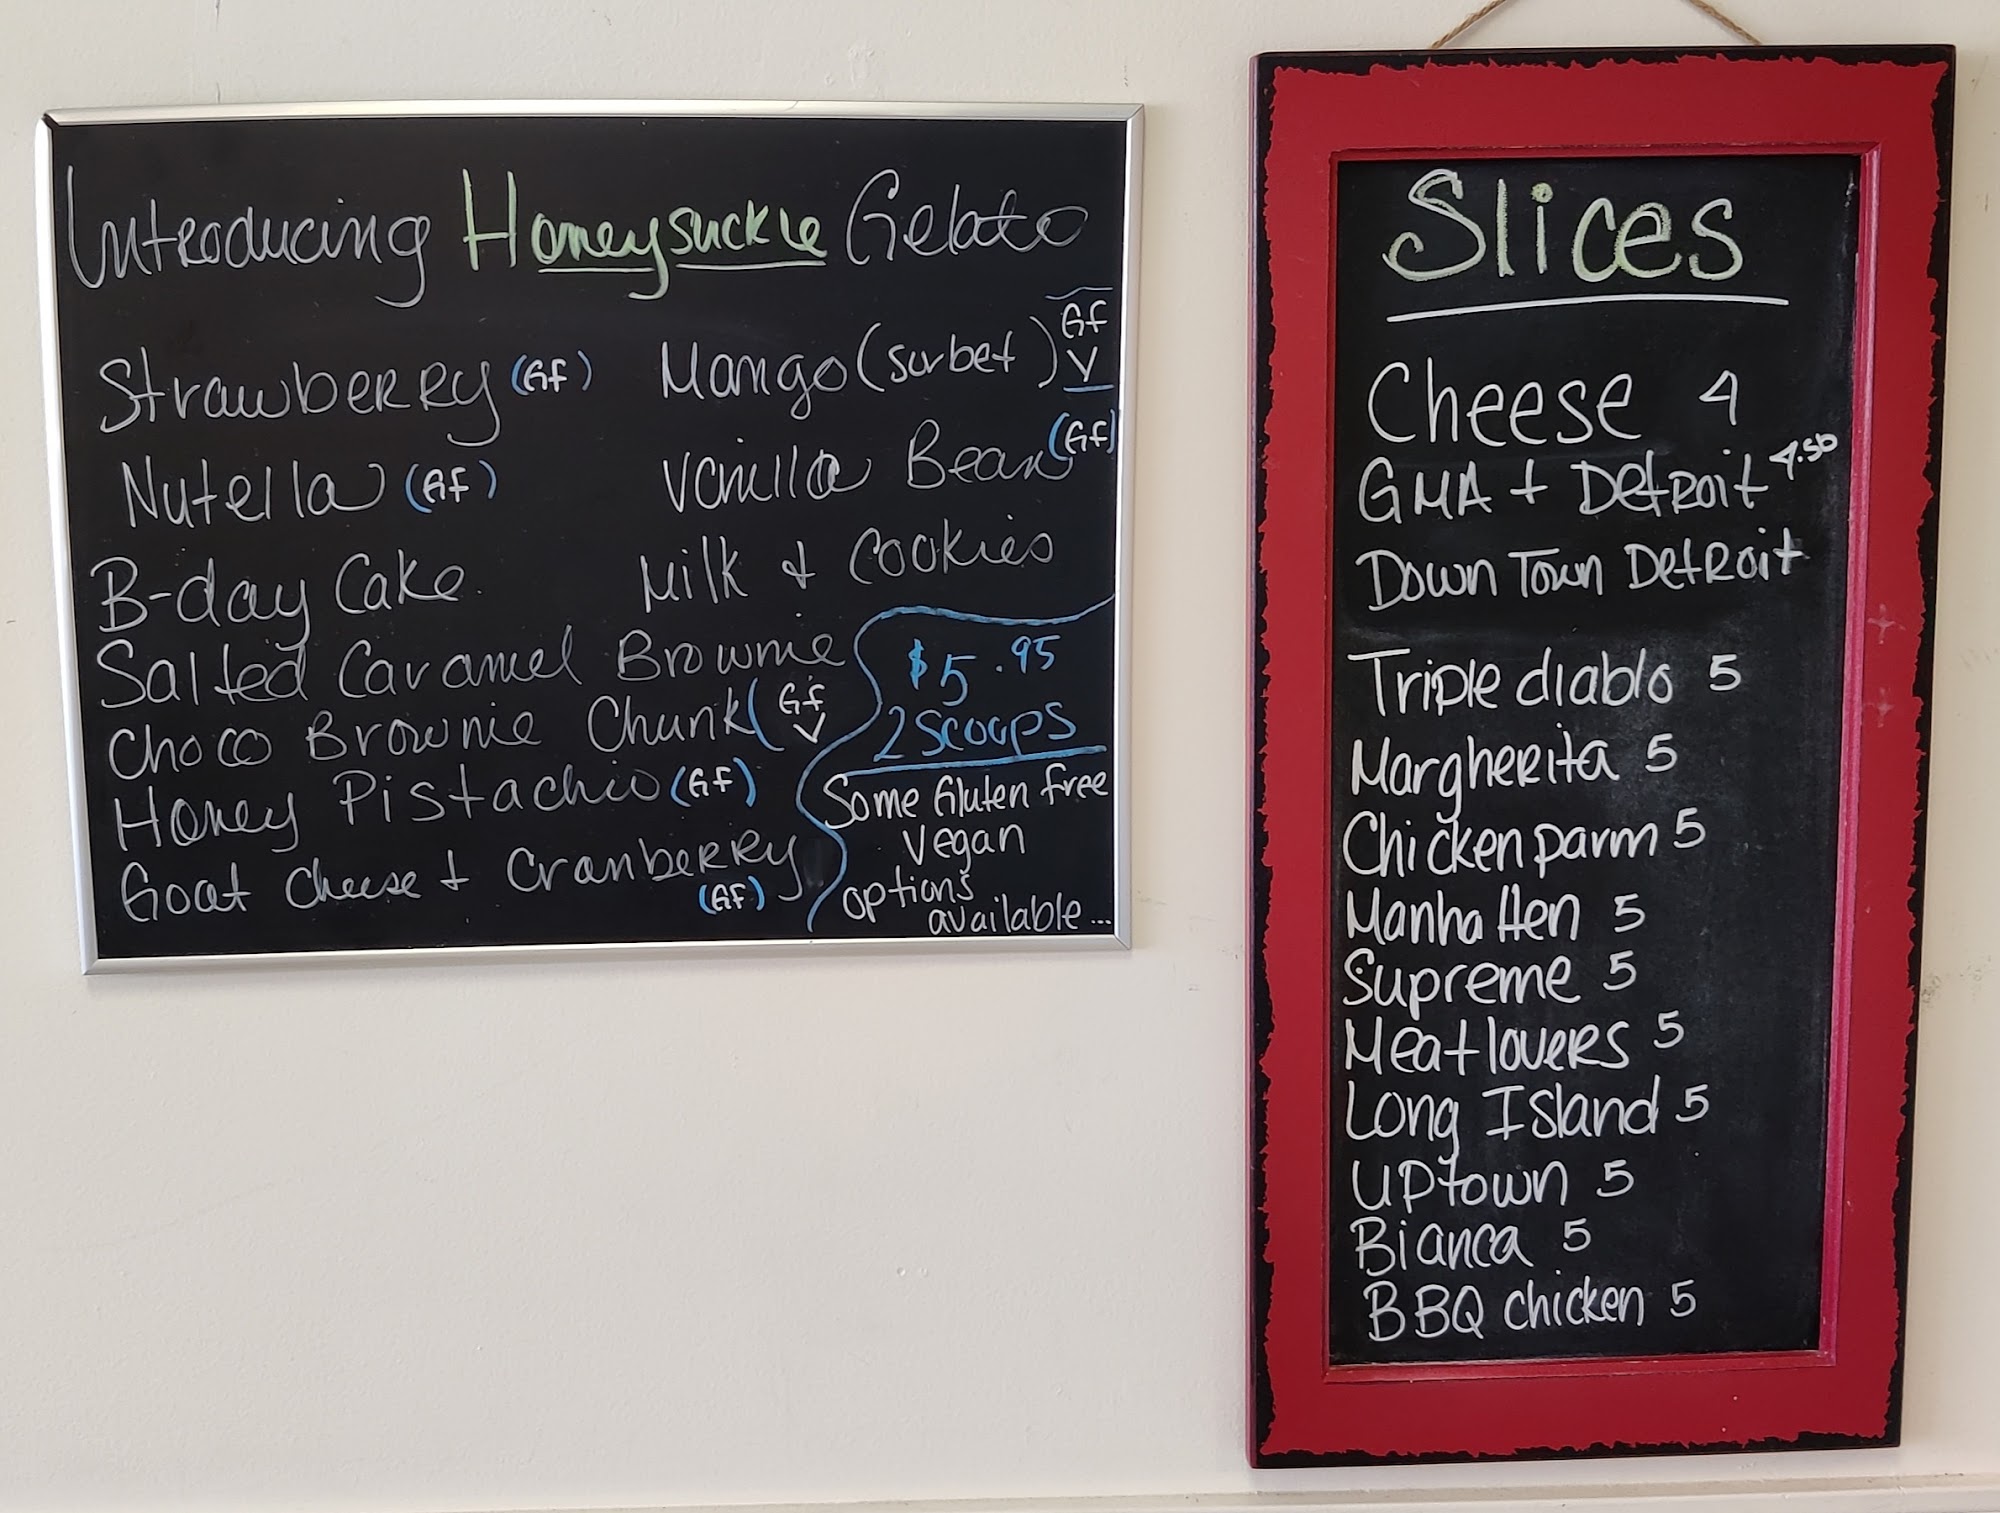 Introducing Honeysuckle Gelato
Strawberry (GF)
Nutella (GF)
B-day Cake
Mango (sorbet) GF V
Vanilla Bean (GF)
Milk + Cookies
Salted Caramel Brownie
Choco Brownie Chunk (GF V
Honey Pistachio (GF)
Goat Cheese + Cranberry
(GF)
$5.95
2 Scoops
Some Gluten free
Vegan
options
available...
Slices
Cheese 4
GMA + Detroit 4.50
Down Town Detroit
Triple diablo 5
Margherita 5
Chicken parm 5
Manhatten 5
Supreme 5
Meatlovers 5
Long Island 5
Uptown 5
Bianca 5
BBQ chicken 5